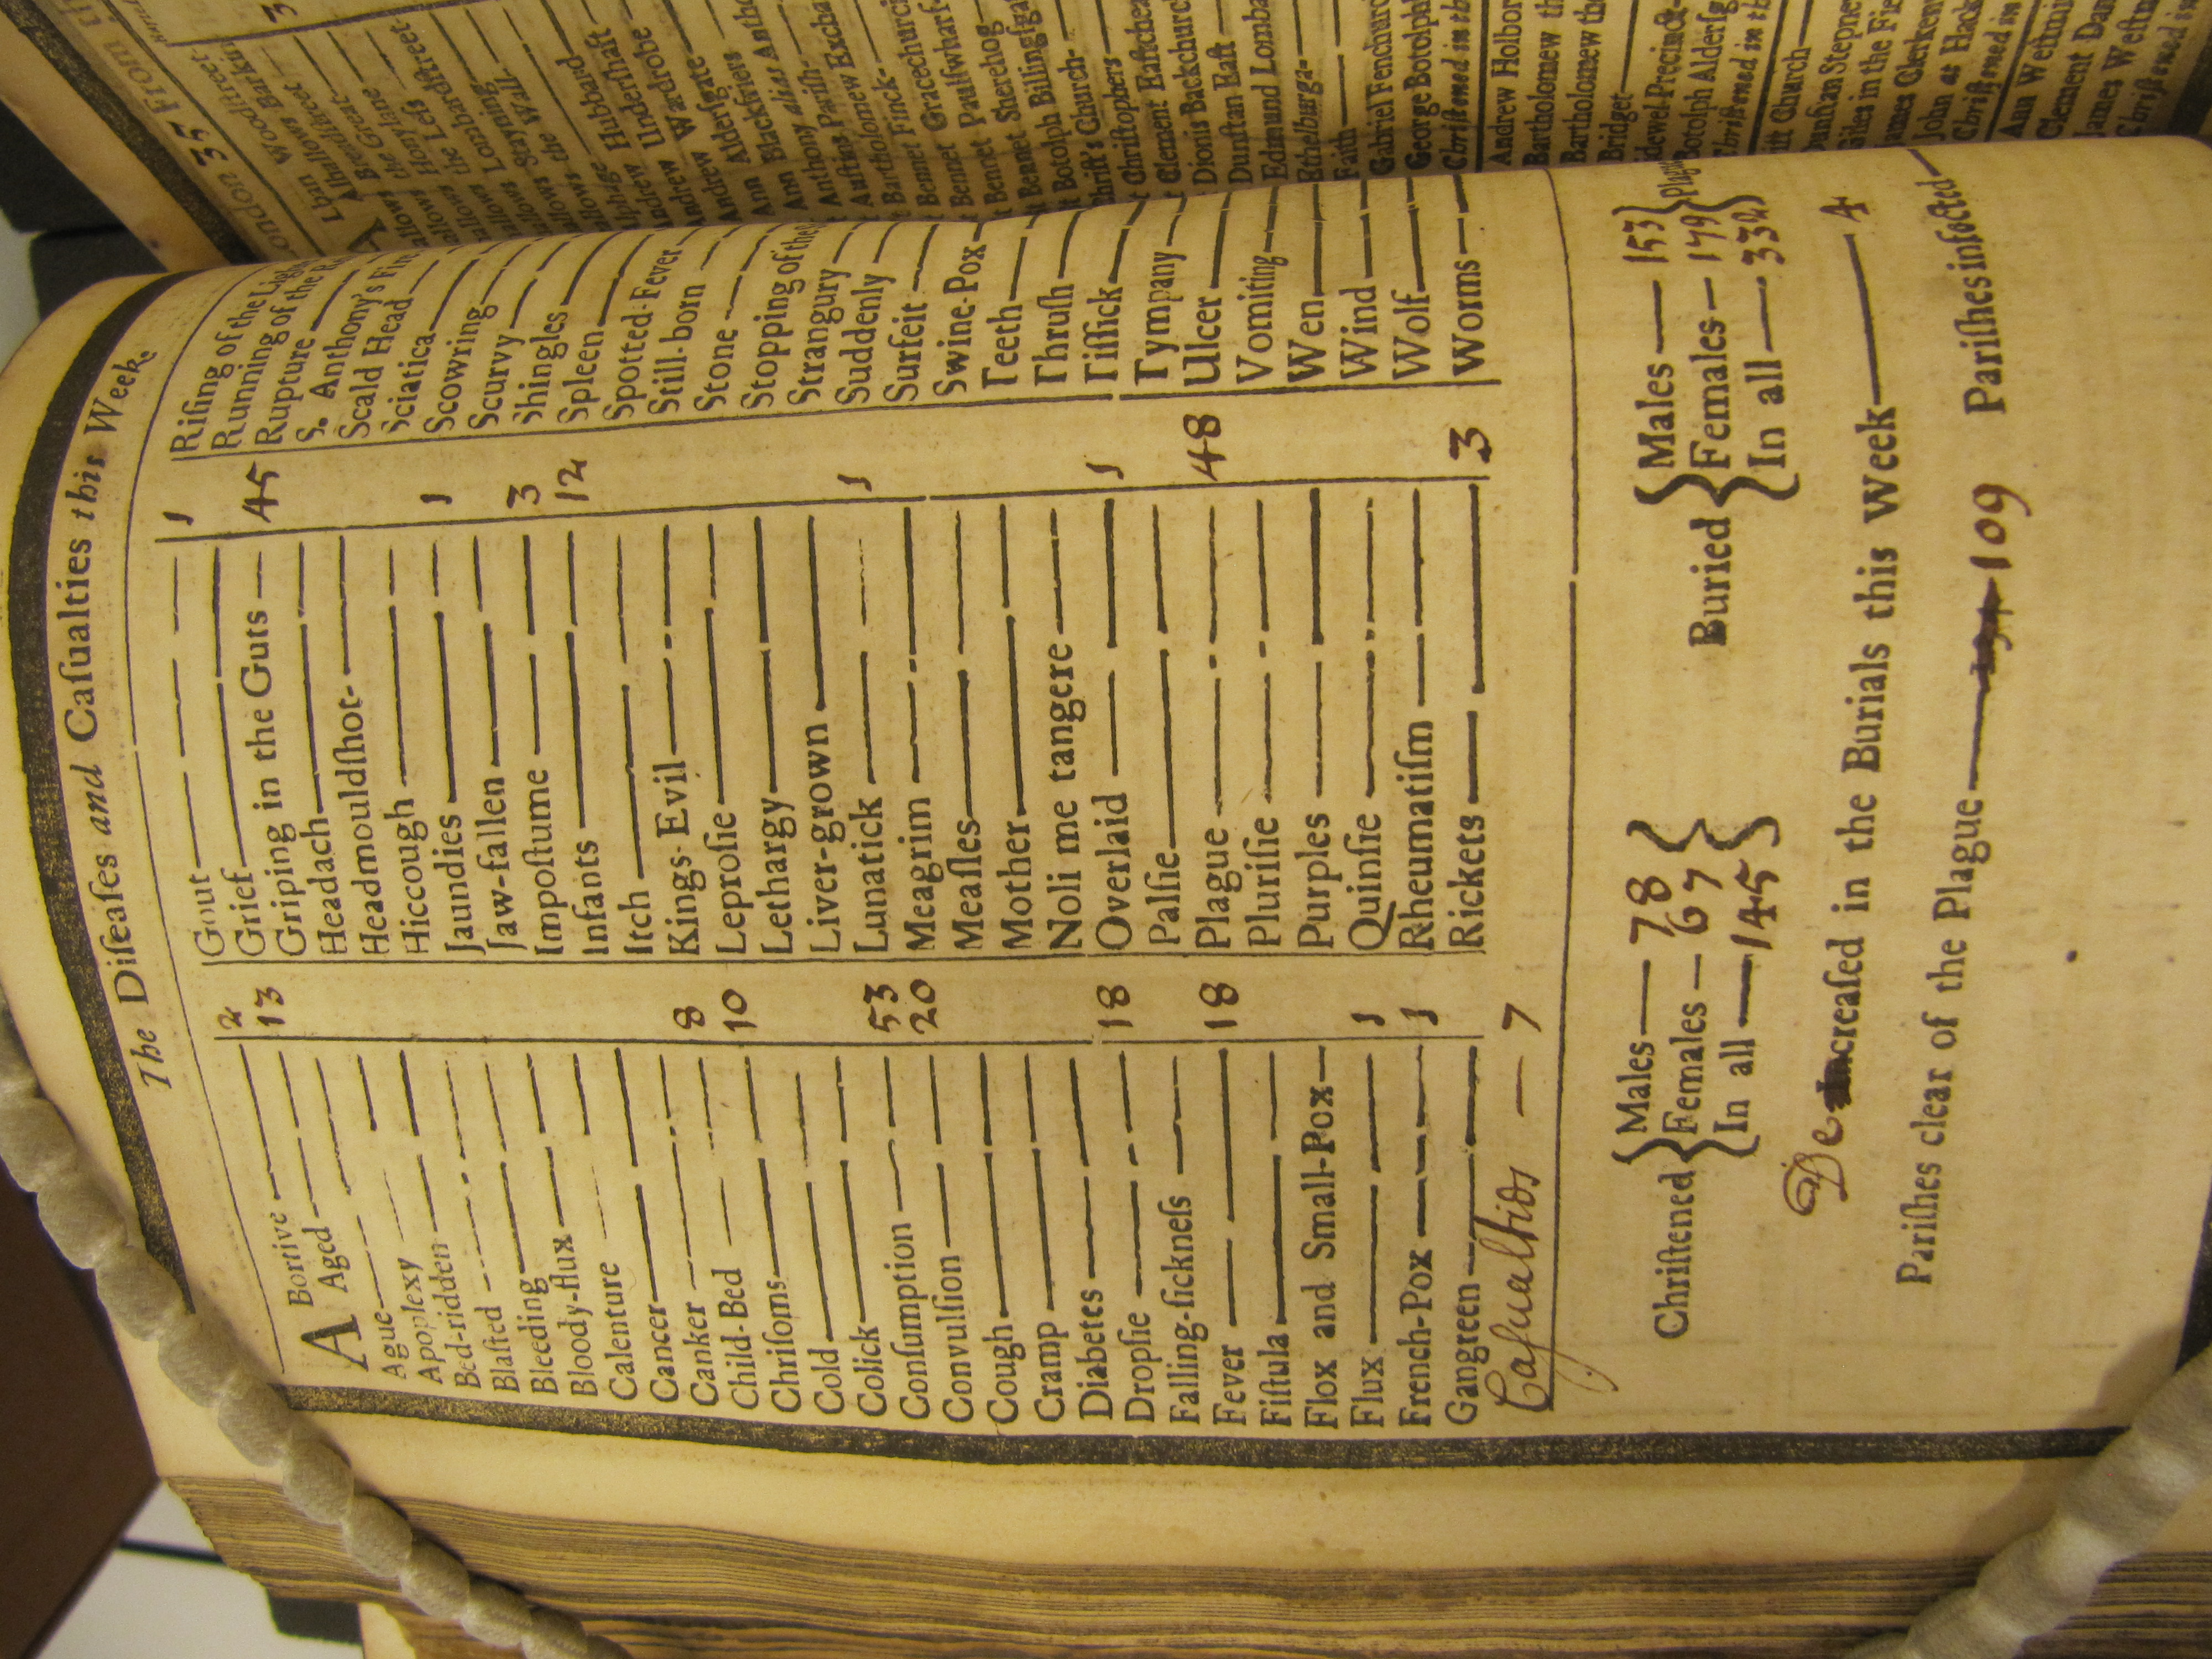 The Diſeaſes and Caſualties this Week.
A Bortive 2
Aged 13
Ague
Apoplexy
Bed-ridden
Blaſted
Bleeding
Bloody-flux
Calenture
Cancer
Canker
Child-Bed 8
Chriſoms 10
Cold
Colick
Conſumption 53
Convulſion 20
Cough
Cramp
Diabetes
Dropſie 18
Falling-ſickneſs
Fever 18
Fiſtula
Flox and Small-Pox
Flux 1
French-Pox 1
Gangreen
Caſualtids — 7
Gout 1
Grief
Griping in the Guts 45
Headach
Headmouldſhot
Hiccough
Jaundies 1
Jaw-fallen
Impoſtume 3
Infants 12
Itch
Kings-Evil
Leproſie
Lethargy
Liver-grown
Lunatick 1
Meagrim
Meaſles
Mother
Noli me tangere
Overlaid 1
Palſie
Plague 48
Pluriſie
Purples
Quinſie
Rheumatiſm
Rickets 3
Riſing of the Ligh
Running of the R
Rupture
S. Anthony's Fir
Scald Head
Sciatica
Scowring
Scurvy
Shingles
Spleen
Spotted-Fever
Still-born
Stone
Stopping of the
Strangury
Suddenly
Surfeit
Swine-Pox
Teeth
Thruſh
Tiſſick
Tympany
Ulcer
Vomiting
Wen
Wind
Wolf
Worms
Chriſtened { Males 78 Females 67 In all 145 }
Buried { Males 153 Females 179 In all 332 } Plague
Decreaſed in the Burials this Week 4
Pariſhes clear of the Plague 109 Pariſhes infected
London 35 From
Lban Woodſtreet 3
Alhallows Barkin
allows Breadſtreet
allows Great
allows Honylane
allows the Leſs
allows Lombardſtreet
allows Stayning
allows the Wall
Alphage
Andrew Hubbard
Andrew Underſhaft
Andrew Wardrobe
Ann Alderſgate
Ann Blackfriers
Anthony alias Antho
Auſtins Pariſh
Bartholomew Excha
Bennet Finck
Bennet Gracechurc
Bennet Paulſwharf
Bennet Sherehog
Botolph Billingſga
hriſt's Church
Chriſtophers
Clement Eaſtchea
Dionis Backchurc
Dunſtan Eaſt
Edmund Lomba
Ethelburga
Faith
Gabriel Fenchurc
George Botolph
Chriſtened in th
Andrew Holbor
Bartholomew th
Bartholomew the
Bridget
idewel Precinct
Botolph Alderſg
Chriſtened in th
iſt Church
Dunſtan Stepne
Giles in the Fie
ames Clerken
John at Hack
Chriſtened in
Ann Weſtmin
Clement Dan
James Weſtm
Chriſtened in